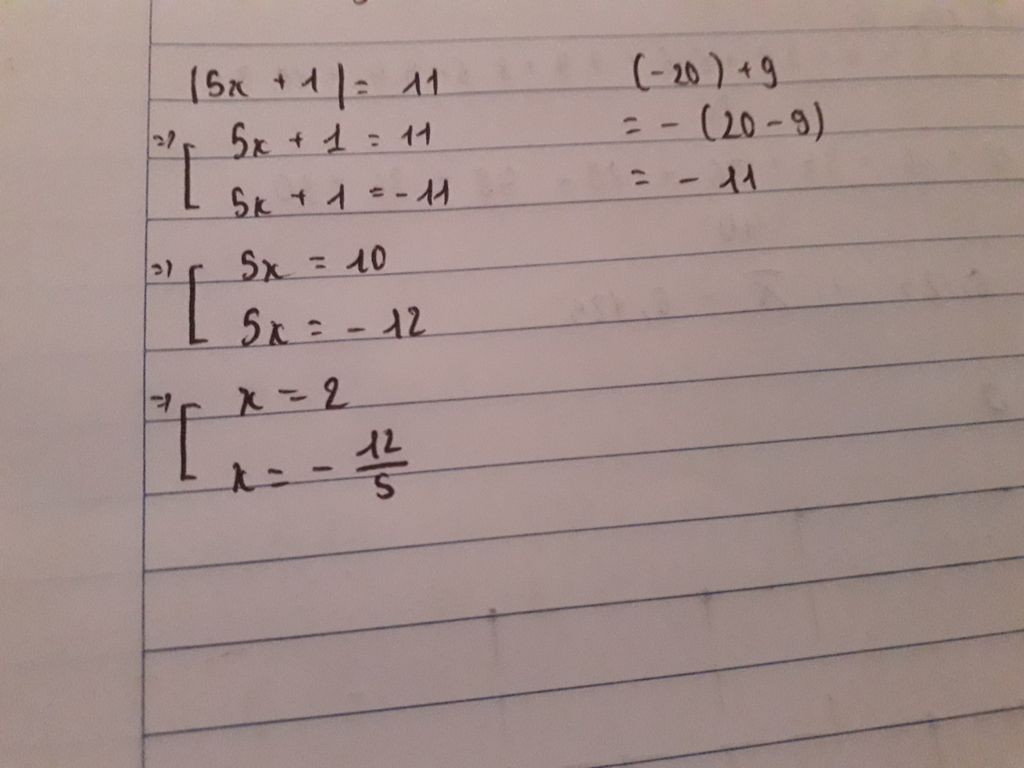 |5x + 1| = 11
=> [ 5x + 1 = 11
5x + 1 = -11
=> [ 5x = 10
5x = - 12
=> [ x = 2
x = - 12/5
(-20) + 9
= - (20 - 9)
= - 11